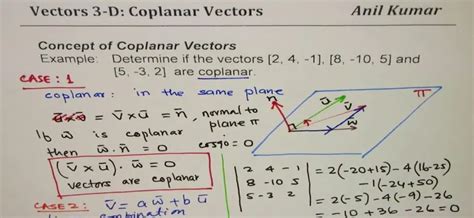 Vectors 3-D: Coplanar Vectors
Anil Kumar
Concept of Coplanar Vectors
Example: Determine if the vectors [2, 4, -1], [8, -10, 5] and
[5, -3, 2] are coplanar.
CASE: 1
coplanar: in the same plane
v̄×ū = n̄, normal to
plane π
If w̄ is coplanar
then w̄·n̄ = 0 cos90=0
(v̄×ū)·w̄ = 0
vectors are coplanar
CASE 2: v̄ = aw̄ + bū
combination
n̄
ū
v̄
w̄
π
| 2 4 -1 |
| 8 -10 5 |
| 5 -3 2 |
= 2(-20+15)-4(16-25)
-1(-24+50)
= 2(-5)-4(-9)-26
= -10+36-26=0